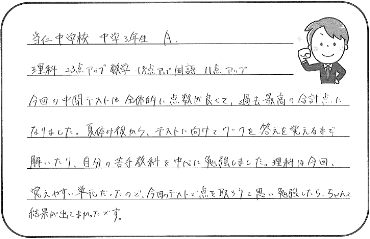 守仁中学校 中学3年生 A.
理科 23点アップ 数学 18点アップ 国語 11点アップ
今回の中間テストは全体的に点数が良くて、過去最高の合計点に
なりました。夏休み後から、テストに向けてワークを答えを覚えるまで
解いたり、自分の苦手教科を中心に勉強しました。理科は今回、
覚えやすい単元だったので、今回のテストで点を取ろうと思い勉強したら、ちゃんと
結果が出てよかったです。